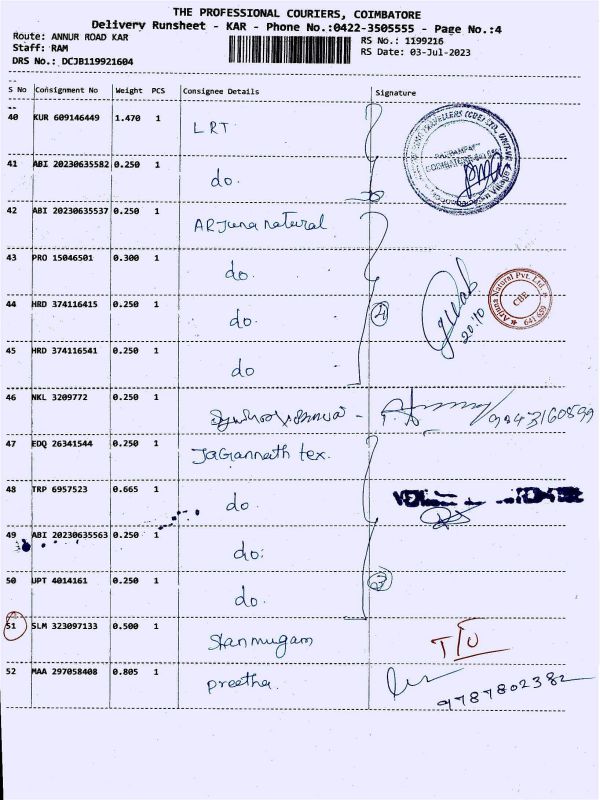 THE PROFESSIONAL COURIERS, COIMBATORE
Delivery Runsheet - KAR - Phone No.:0422-3505555 - Page No.:4
Route: ANNUR ROAD KAR
RS No.: 1199216
Staff: RAM
RS Date: 03-Jul-2023
DRS No.: DCJB119921604
S No Consignment No Weight PCS Consignee Details Signature
40 KUR 609146449 1.470 1 LRT
41 ABI 20230635582 0.250 1 do.
42 ABI 20230635537 0.250 1 ARjuna natural
43 PRO 15046501 0.300 1 do.
44 HRD 374116415 0.250 1 do. 4
Arjuna Natural Pvt. Ltd. CBE 641 659
20:10
45 HRD 374116541 0.250 1 do
46 NKL 3209772 0.250 1 9843160899
47 EDQ 26341544 0.250 1 JaGannath tex.
48 TRP 6957523 0.665 1 do.
49 ABI 20230635563 0.250 1 do:
50 UPT 4014161 0.250 1 do. 3
51 SLM 323097133 0.500 1 Shanmugam T/U
52 MAA 297058408 0.805 1 preetha. 9787802382